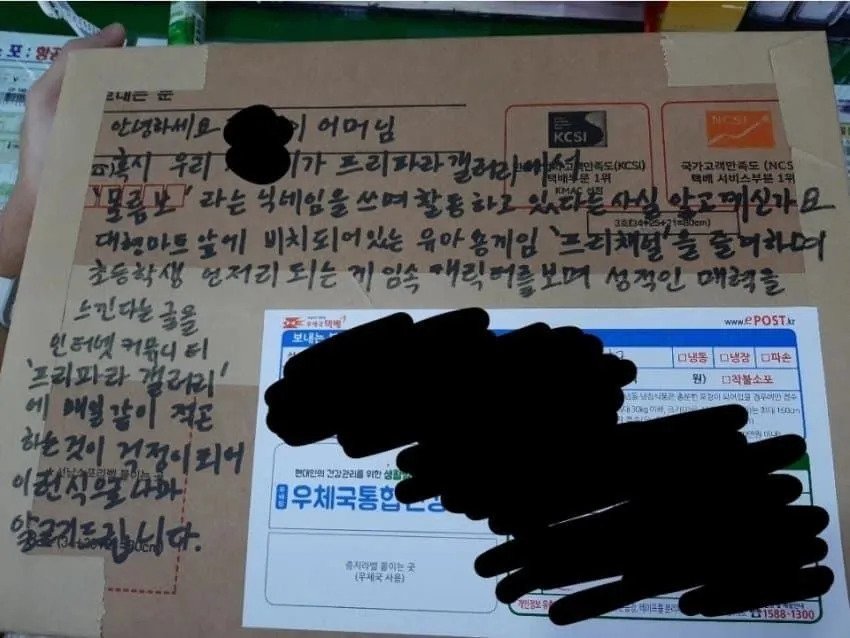 보내는 분
안녕하세요 이 어머님
혹시 우리 이가 프리파라갤러리에서
'모름보' 라는 닉네임을 쓰며 활동하고 있다는 사실 알고계신가요
대형마트앞에 비치되어있는 유아용게임 '프리채널'을 즐겨하며
초등학생 언저리 되는 게임속 캐릭터를보며 성적인 매력을
느낀다는 글을
인터넷 커뮤니티
'프리파라 갤러리'
에 매일같이 적곤
하는것이 걱정이되어
이런식으로나마
알려드립니다.
KCSI
NCSI
국가고객만족도(KCSI)
택배부문 1위
KMAC 선정
국가고객만족도 (NCS
택배 서비스부문 1위
3호(34+25+21=80cm)
우체국택배
www.ePOST.kr
보내는
□냉동 □냉장 □파손
원) □착불소포
현대인의 건강관리를 위한 생활
우체국통합건강
증지라벨 붙이는 곳
(우체국 사용)
개인정보 유출
☎1588-1300